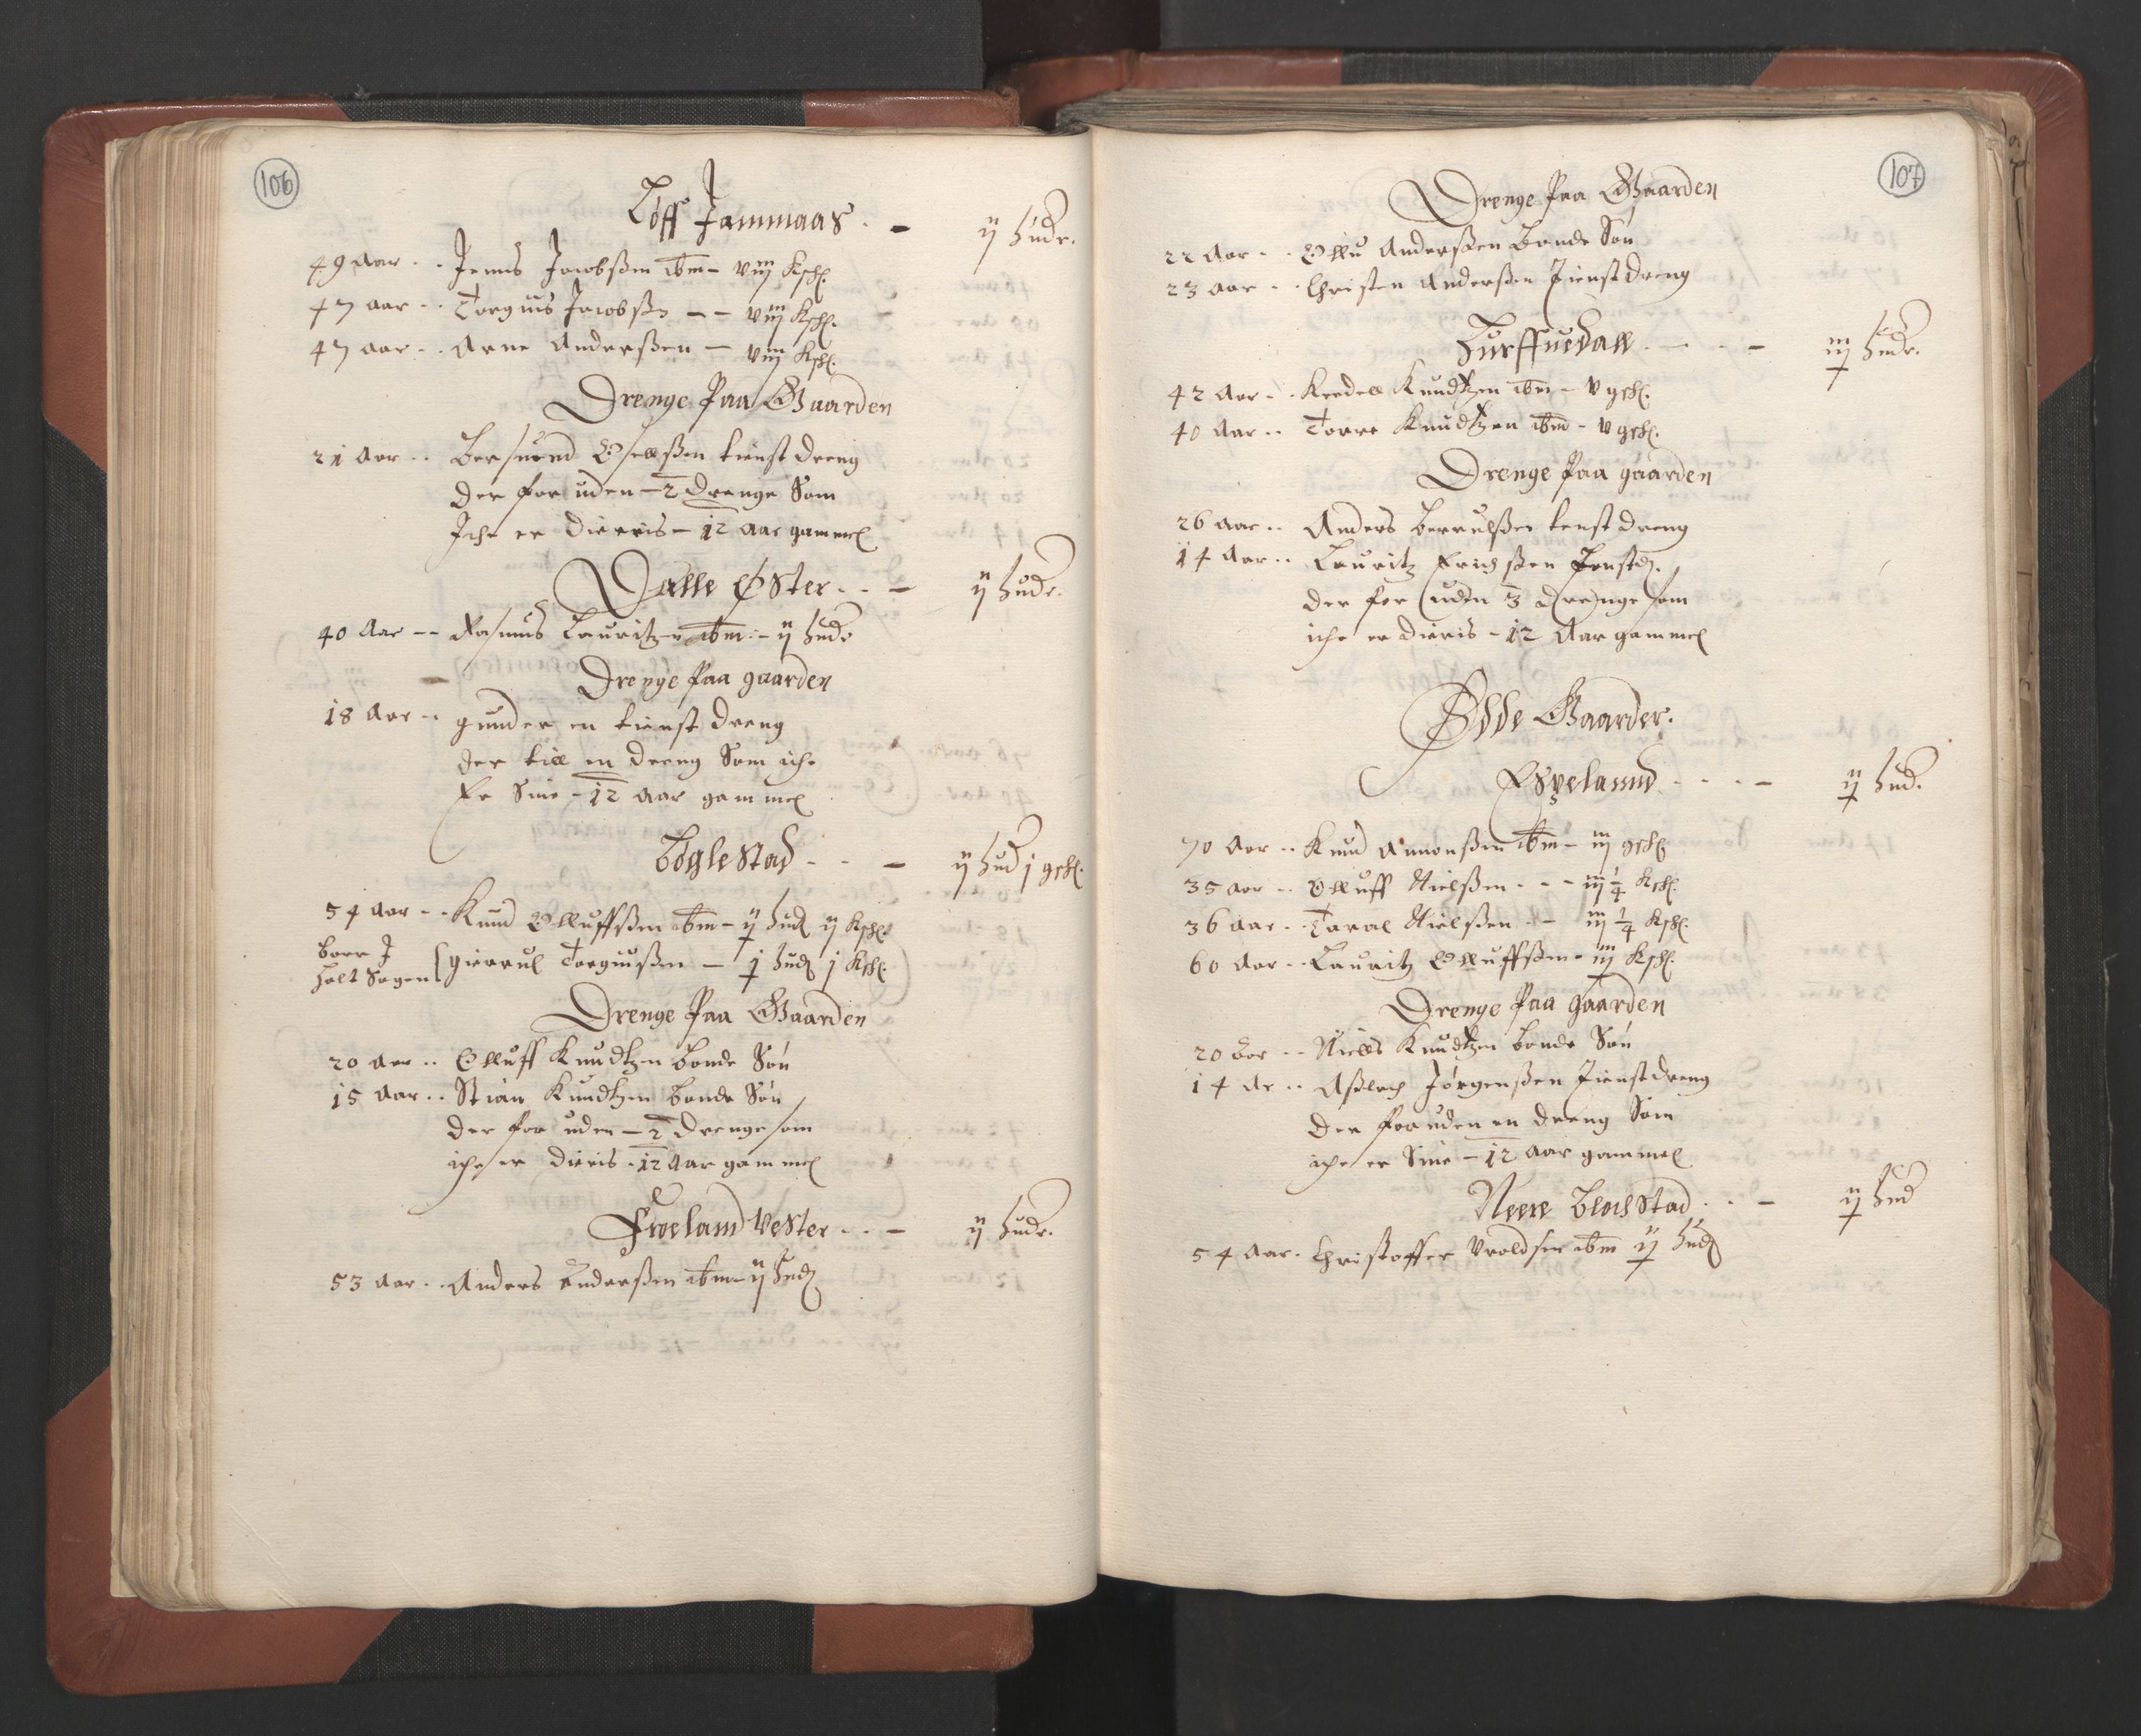 106
Løff Jammaas - ij hudr.
49 Aar - Jenns Jacobßen ibm - viij Kschl.
47 aar - Torguis Jacobßen - viij Kschl.
47 aar - Arne Anderßen - viij Kschl.
Drenge Paa Gaarden
21 Aar - tienst dreng
Der for uden - 2 drenge Som
Iche er dieris - 12 aar gammel
Dalle Øster - ij hudr.
40 Aar - Rasmus Lauritzen ibm - ij hudr
Drenge Paa gaarden
18 Aar - gunder en tienst dreng
Der till en dreng Som iche
Er Sine - 12 aar gammel
Bøglestad - ij hud j gschl.
54 aar - Knud Olluffßen ibm - hud ij Kschl.
boer J
holt Sogen Gierrul Torguußen - hud j Kschl.
Drenge Paa Gaarden
20 aar - Olluff Knudtzen bonde Søn
15 Aar - Stian Knudtzen bonde Søn
Der for uden - 2 drenge som
iche er dieris - 12 Aar gammel
Frøeland Vester - ij hudr.
53 aar - Anders Enderßen ibm - ij hud
107
Drenge Paa Gaarden
22 Aar - Ollu Anderßen Bonde Søn
23 aar - Christen Anderßen Tienst dreng
Hurffuedall - hudr.
42 Aar - Knudtzen ibm - v gschl.
40 Aar - Torre Knudtzen ibm - v gschl.
Drenge Paa gaarden
26 aar - Anders Berrulßen tienst dreng
14 Aar - Lauritz Erichßen
Der for uden 3 drenge som
iche er dieris - 12 Aar gammel
Øde Gaarder.
Espelannd - hud.
70 Aar - Knud Amonßen ibm - iij gschl.
35 aar - Olluff Nielßen - iij 1/4 Kschl.
36 aar - Taral Nielßen - iij 1/4 Kschl.
60 Aar - Lauritz Olluffßen - Kschl.
Drenge Paa gaarden
20 Aar - Niells Knudtzen bonde Søn
14 Ar - Aßlach Jørgenßen Tienst dreng
Der foruden en dreng Som
iche er Sine - 12 Aar gammel
Neere Blachstad - hud
54 Aar - Christoffer Vroldsen ibm hud